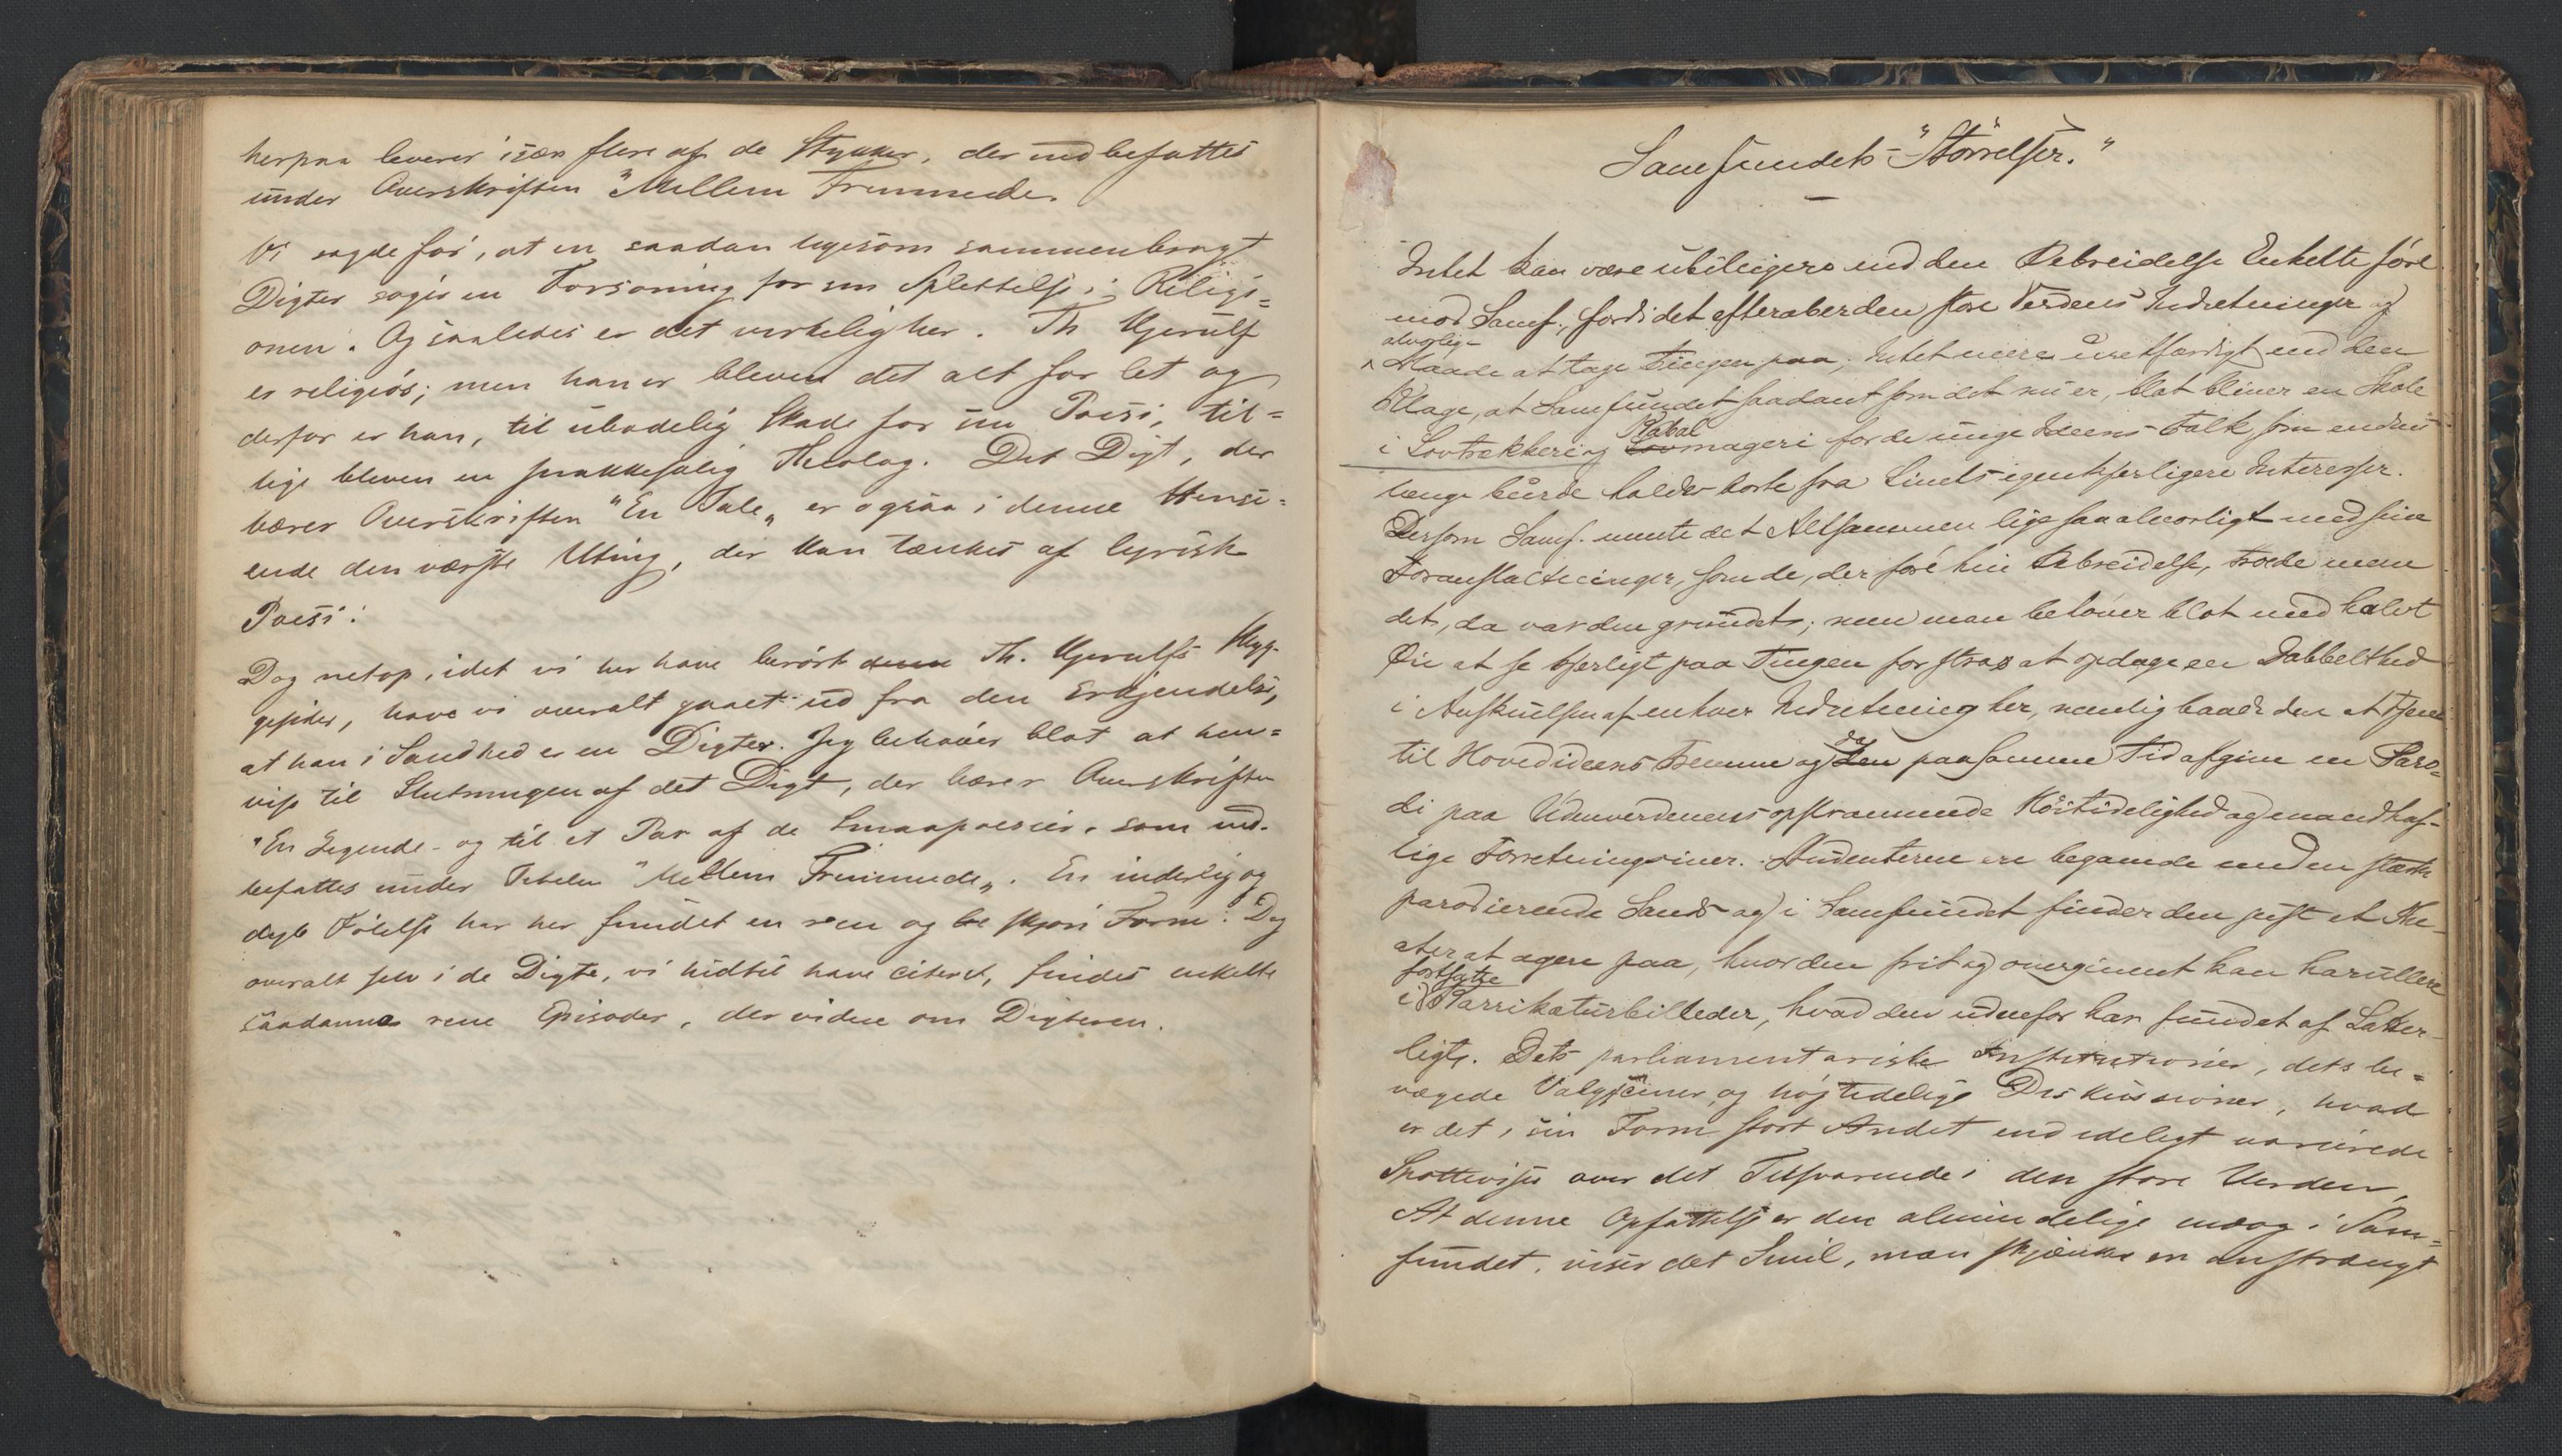 herpaa leverer især flere af de Stykker, der indbefattes
under Overskriften "Mellem Fremmede.
Vi sagde før, at en saadan ligesom sammenbragt
Digter søger en Forsoning for sin Splittelse i Religi=
onen. Og saaledes er det virkelig her. Th Kjerulf
er religiøs; men han er bleven det alt for let og
derfor er han, til ubodelig Skade for sin Poesi, til=
lige bleven en snakkesalig Theolog. Det Digt, der
bærer Overskriften "En Tale„ er ogsaa i denne Hensi=
ende den værste Uting, der kan tænkes af lyrisk
Poesi:
Dog netop, idet vi her have berørt denne Th. Kjerulfs Skyg-
gesider, have vi overalt gaaet ud fra den Erkjendelse,
at han i Sandhed er en Digter. Jeg behøver blot at hen=
vise til Slutningen af det Digt, der bærer Overskriften
"En Legende- og til et Par af de Smaapoesier, som ind-
befattes under Titelen "Mellem Fremmede„. En inderlig og
dyb Følelse har her fundet en ren og skjøn Form. Dog
overalt selv i de Digte, vi hidtil have citeret, findes enkelte
saadanne rene Episoder, der vidne om Digteren.
Samfundets-"Størrelser."
Intet kan være ubilligere end den Bebreidelse Enkelte føre
mod Samf., fordi det efteraber den store Verdens Indretninger og
alvorlig-
Maade at tage Tingen paa; Intet mere uretfærdigt end den
Klage, at Samfundet saadant som det nu er, blot bliver en Skole
i Lovtrækkeri og Kabal Lovmageri for de unge Ideens-Folk som endnu
længe burde holdes borte fra Livets egentligere Interesser.
Dersom Samf. mente det Altsammen lige saa alvorligt med sine
Foranstaltninger, som de, der føre hin Bebreidelse, troede men
det, da var den grundet; men man behøver blot med halvt
Øie at se kjærligt paa Tingen for strax at opdage en Dobbelthed
i Anskuelsen af enhver Indretning her, nemlig baade den at tjene
til Hovedideens Fremme og da den paa samme Tid afgive en Paro=
di paa Udenverdenens opskruende Høitidelighed og mandhaf-
lige Forretningsiver. Studenterne ere begavede med en stærk
parodierende Sands og i Samfundet finder den just et The-
ater at agere paa, hvor den frit og overgivent kan karullere
fortsatte
i Karrikaturbilleder, hvad den udenfor har fundet af Latter-
ligt. Dets parliamentariske Institutioner, dets be=
vægede Valgscener, og højtidelige Diskussioner, hvad
er det i sin Form stort Andet end ideligt varierede
Spottevise over det Tilsvarende i den store Verden,
At denne Opfattelse er den almindelige ogsaa i Sam=
fundet, viser det Smil, man skjænker en anstrængt